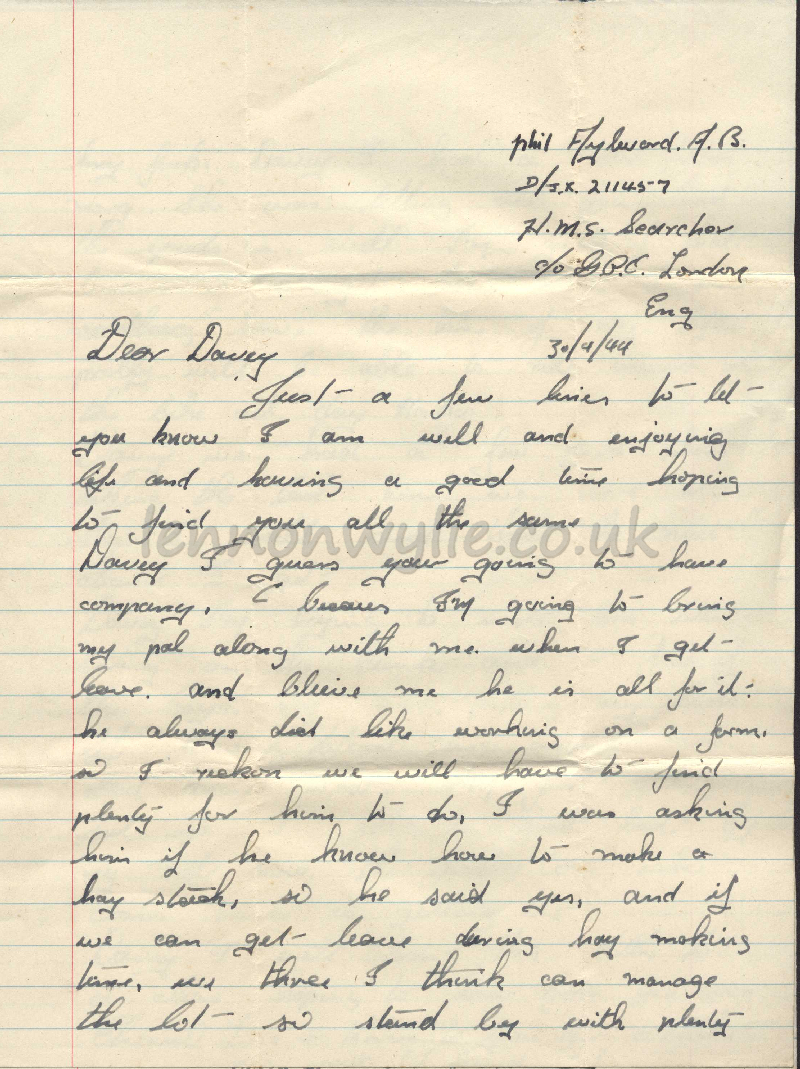 phil Aylward. A.B.
D/J.X. 211457
H.M.S. Searcher
c/o G.P.O. London
Eng
30/4/44
Dear Davey
Just a few lines to let
you know I am well and enjoying
life and having a good time hoping
to find you all the same
lennonwylie.co.uk
Davey I guess your going to have
company, I because I'm going to bring
my pal along with me when I get
leave. and blieve me he is all for it.
he always did like working on a farm.
so I reckon we will have to find
plenty for him to do, I was asking
him if he know how to make a
hay stack, so he said yes, and if
we can get leave during hay making
time, we three I think can manage
the lot so stand by with plenty